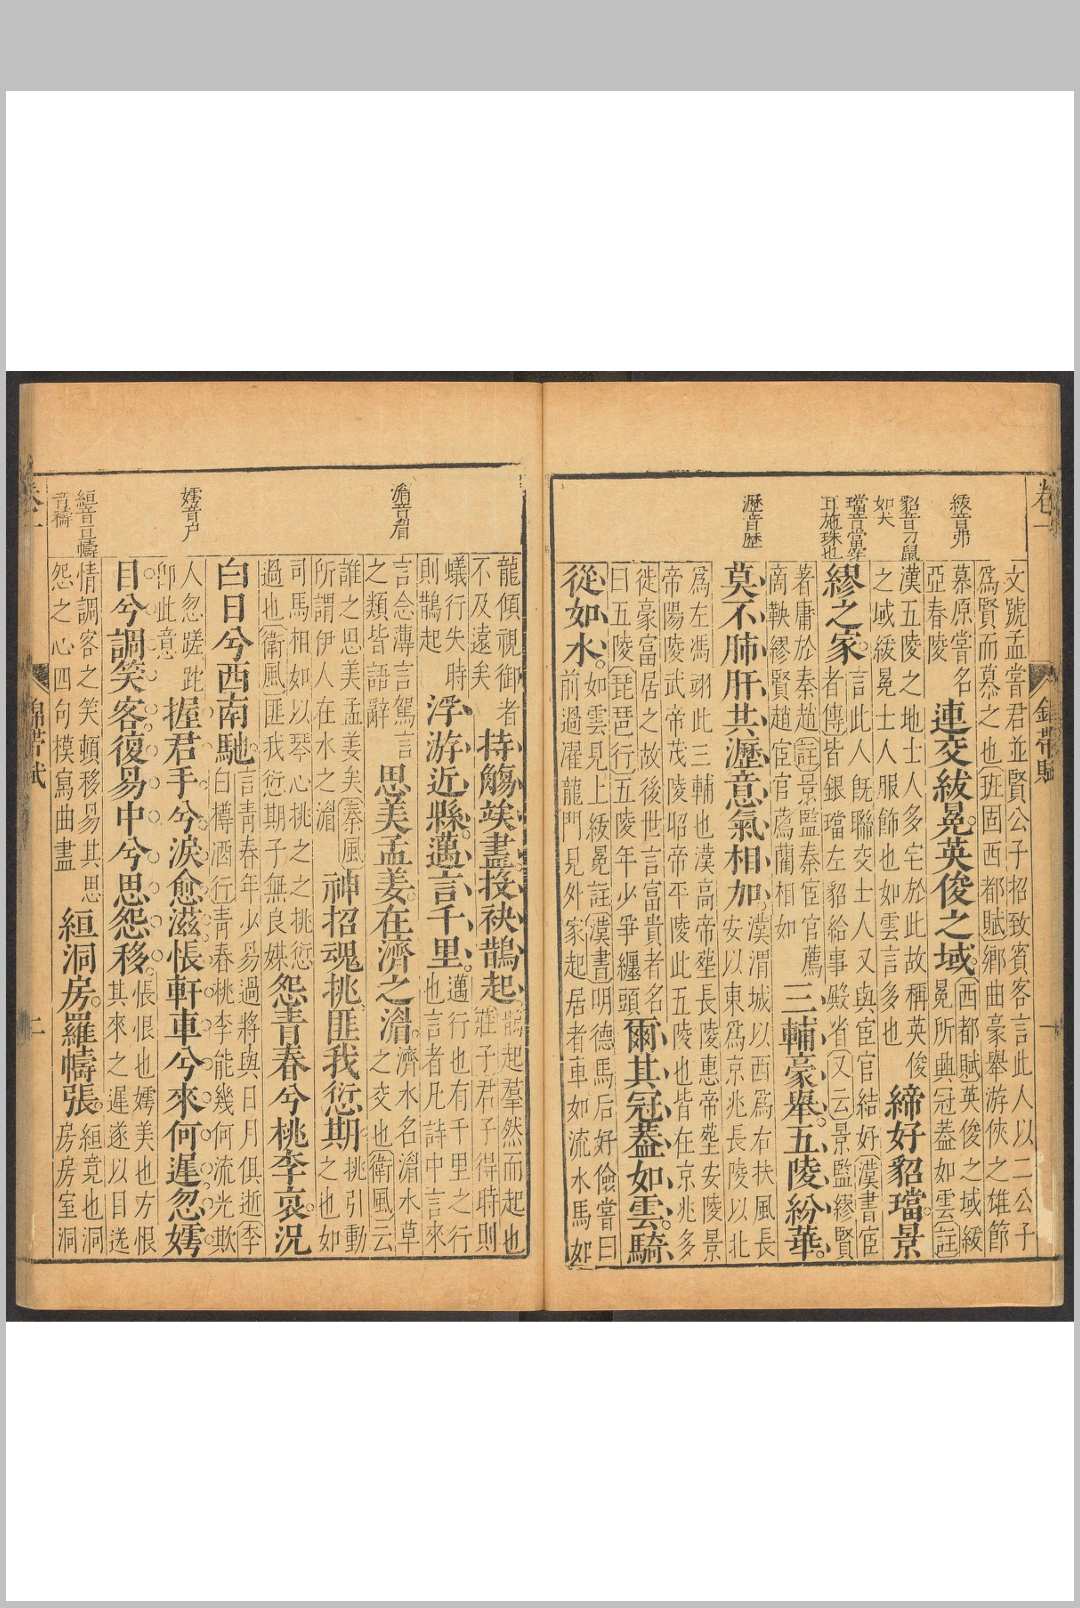 紱音弗
貂音刀鼠
如犬
璫音當穿
耳施珠也
瀝音歴
卷一
錦帶賦
一
文號孟嘗君並賢公子招致賓客言此人以二公子
爲賢而慕之也班固西都賦鄉曲豪舉游俠之雄節
慕原嘗名
亞春陵
連交紱冕英俊之域
西都賦英俊之域紱
冕所興冠蓋如雲註
漢五陵之地士人多宅於此故稱英俊
之域紱冕士人服飾也如雲言多也
締好貂璫景
繆之家
言此人旣聯交士人又與宦官結好漢書宦
者傳皆銀璫左貂給事殿省又云景監繆賢
著庸於秦趙註景監秦宦官薦
商鞅繆賢趙宦官薦藺相如
三輔豪舉五陵紛華
莫不肺肝共瀝意氣相加
漢渭城以西爲右扶風長
安以東爲京兆長陵以北
爲左馮翊此三輔也漢高帝塟長陵惠帝塟安陵景
帝陽陵武帝茂陵昭帝平陵此五陵也皆在京兆多
徙豪富居之故後世言富貴者名
曰五陵琵琶行五陵年少爭纏頭
爾其冠蓋如雲騎
從如水
如雲見上紱冕註漢書明德馬后好儉嘗曰
前過濯龍門見外家起居者車如流水馬如
滣音眉
嫮音户
絙音亘幬
音檮
龍傾視御者
不及遠矣
持觴竢盡投袂鵲起
鵲起羣然而起也
莊子君子得時則
蟻行失時
則鵲起
浮游近縣邁言千里
邁行也有千里之行
也言者凡詩中言來
言念薄言駕言
之類皆語辭
思美孟姜在濟之滣
濟水名滣水草
之交也衛風云
誰之思美孟姜矣秦風
所謂伊人在水之滣
神招魂挑匪我愆期
挑引動
之也如
司馬相如以琴心挑之之挑愆
過也衛風匪我愆期子無良媒
怨青春兮桃李哀況
白日兮西南馳
言青春年少易過將與日月俱逝李
白樽酒行青春桃李能幾何流光欺
人忽蹉跎
卽此意
握君手兮淚愈滋悵軒車兮來何遲忽嫮
目兮調笑客復易中兮思怨移
悵恨也嫮美也方恨
其來之遲遂以目送
情調客之笑頓移易其思
怨之心四句模寫曲盡
絙洞房羅幬張
絙竟也洞
房房室洞